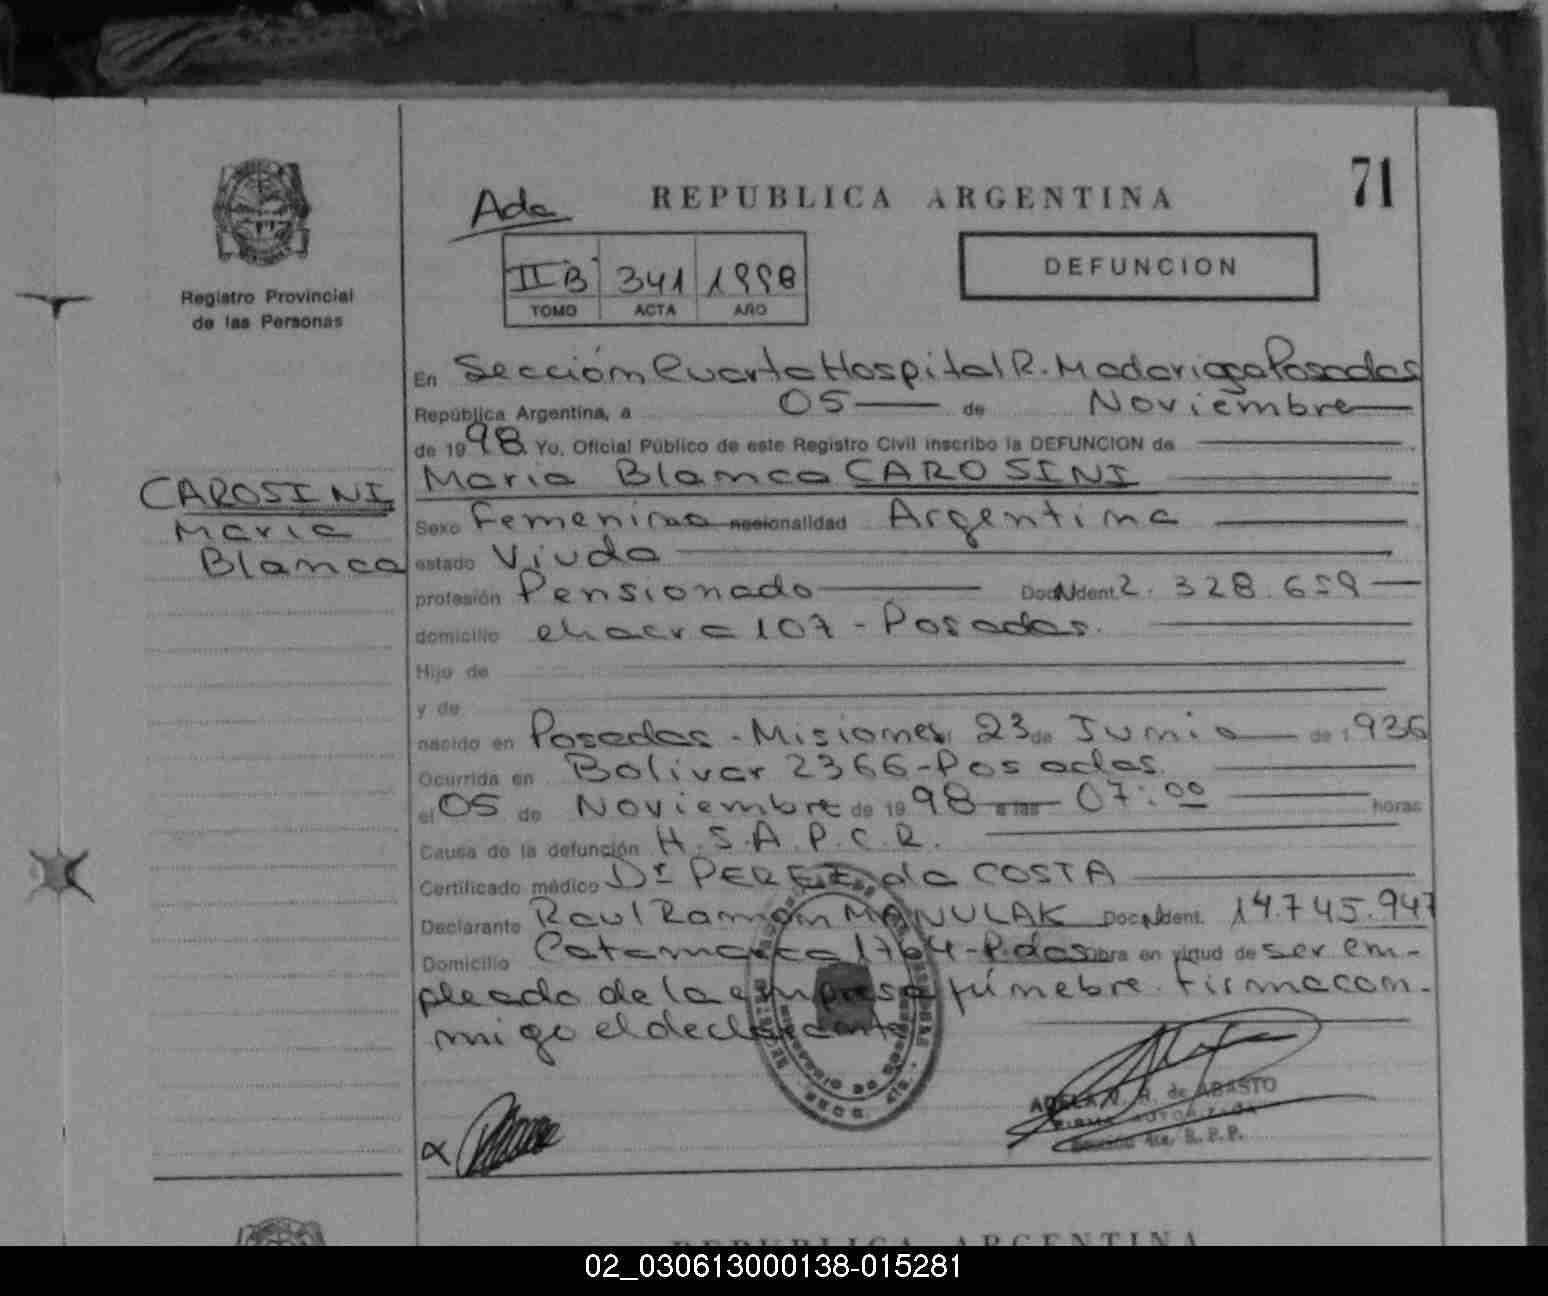 71
Ada
REPUBLICA ARGENTINA
IIB 341 1998
TOMO ACTA AÑO
DEFUNCION
Registro Provincial
de las Personas
En Sección Cuarta Hospital R. Madariaga Posadas
República Argentina, a 05 de Noviembre
de 1998 Yo, Oficial Público de este Registro Civil inscribo la DEFUNCION de
Maria Blanca CAROSINI
CAROSINI
Maria
Blanca
Sexo Femenino nacionalidad Argentina
estado Viuda
profesión Pensionado Doc.N.Ident. 2.328.659
domicilio chacra 107 - Posadas.
Hijo de
y de
nacido en Posadas - Misiones 23 de Junio de 1.936
Ocurrida en Bolivar 2366 - Posadas.
el 05 de Noviembre de 1998 a las 07:00 horas
Causa de la defunción H.S.A.P.C.R.
Certificado médico Dr PEREZ da COSTA
Declarante Raul Ramon MANULAK Doc.N.Ident. 14.745.947
Domicilio Catamarca 1764 - Pdas obra en virtud de ser em-
pleado de la empresa fúnebre. Firma con-
migo el declarante
ADELA N. R. de ABASTO
FIRMA AUTORIZADA
Sección 4ta. R.P.P.
REPUBLICA ARGENTINA
02_030613000138-015281